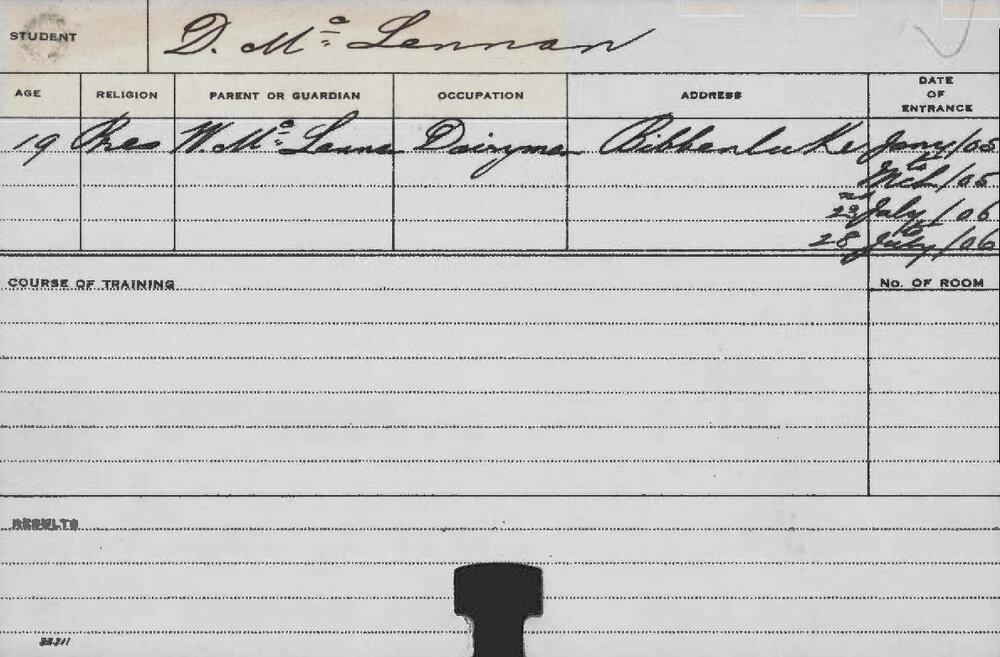 STUDENT D. Mc Lennan
AGE RELIGION PARENT OR GUARDIAN OCCUPATION ADDRESS DATE OF ENTRANCE
19 Pres W. Mc Lenna Dairyman Bibbenluke Jany/05
to
Mch/05
23rd July/06
to
28 July/06
COURSE OF TRAINING No. OF ROOM
RESULTS